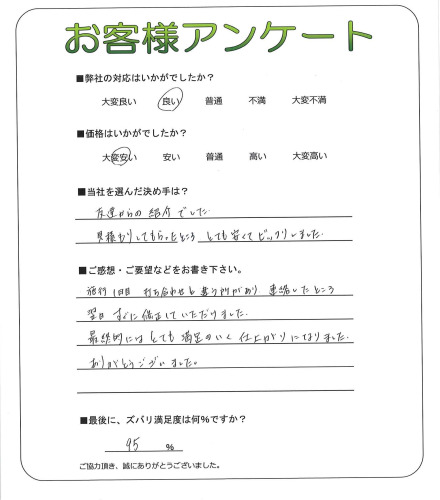 お客様アンケート
■弊社の対応はいかがでしたか？
大変良い 良い 普通 不満 大変不満
■価格はいかがでしたか？
大変安い 安い 普通 高い 大変高い
■当社を選んだ決め手は？
友達からの紹介でした。
見積もりしてもらったところ とても安くてビックリしました。
■ご感想・ご要望などをお書き下さい。
施行1日目 打ち合わせと違う所があり 連絡したところ
翌日すぐに修正していただけました。
最終的にはとても満足のいく仕上がりになりました。
ありがとうございました。
■最後に、ズバリ満足度は何%ですか？
95 %
ご協力頂き、誠にありがとうございました。